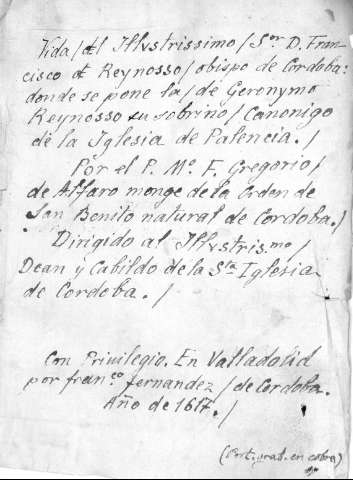 Vida / del Illvstrissimo / Sor D. Fran-
cisco de Reynosso / obispo de Cordoba:
donde se pone la / de Geronymo
Reynosso su sobrino / Canonigo
de la Iglesia de Palencia. /
Por el P. Mo. F. Gregorio /
de Alfaro monge de la Orden de
San Benito natural de Cordoba. /
Dirigido al Illvstris.mo /
Dean y Cabildo de la Sta Iglesia
de Cordoba. /
Con Privilegio. En Valladolid
por franco fernandez / de Cordoba.
Año de 1617. /
(Port. grab. en cobre)